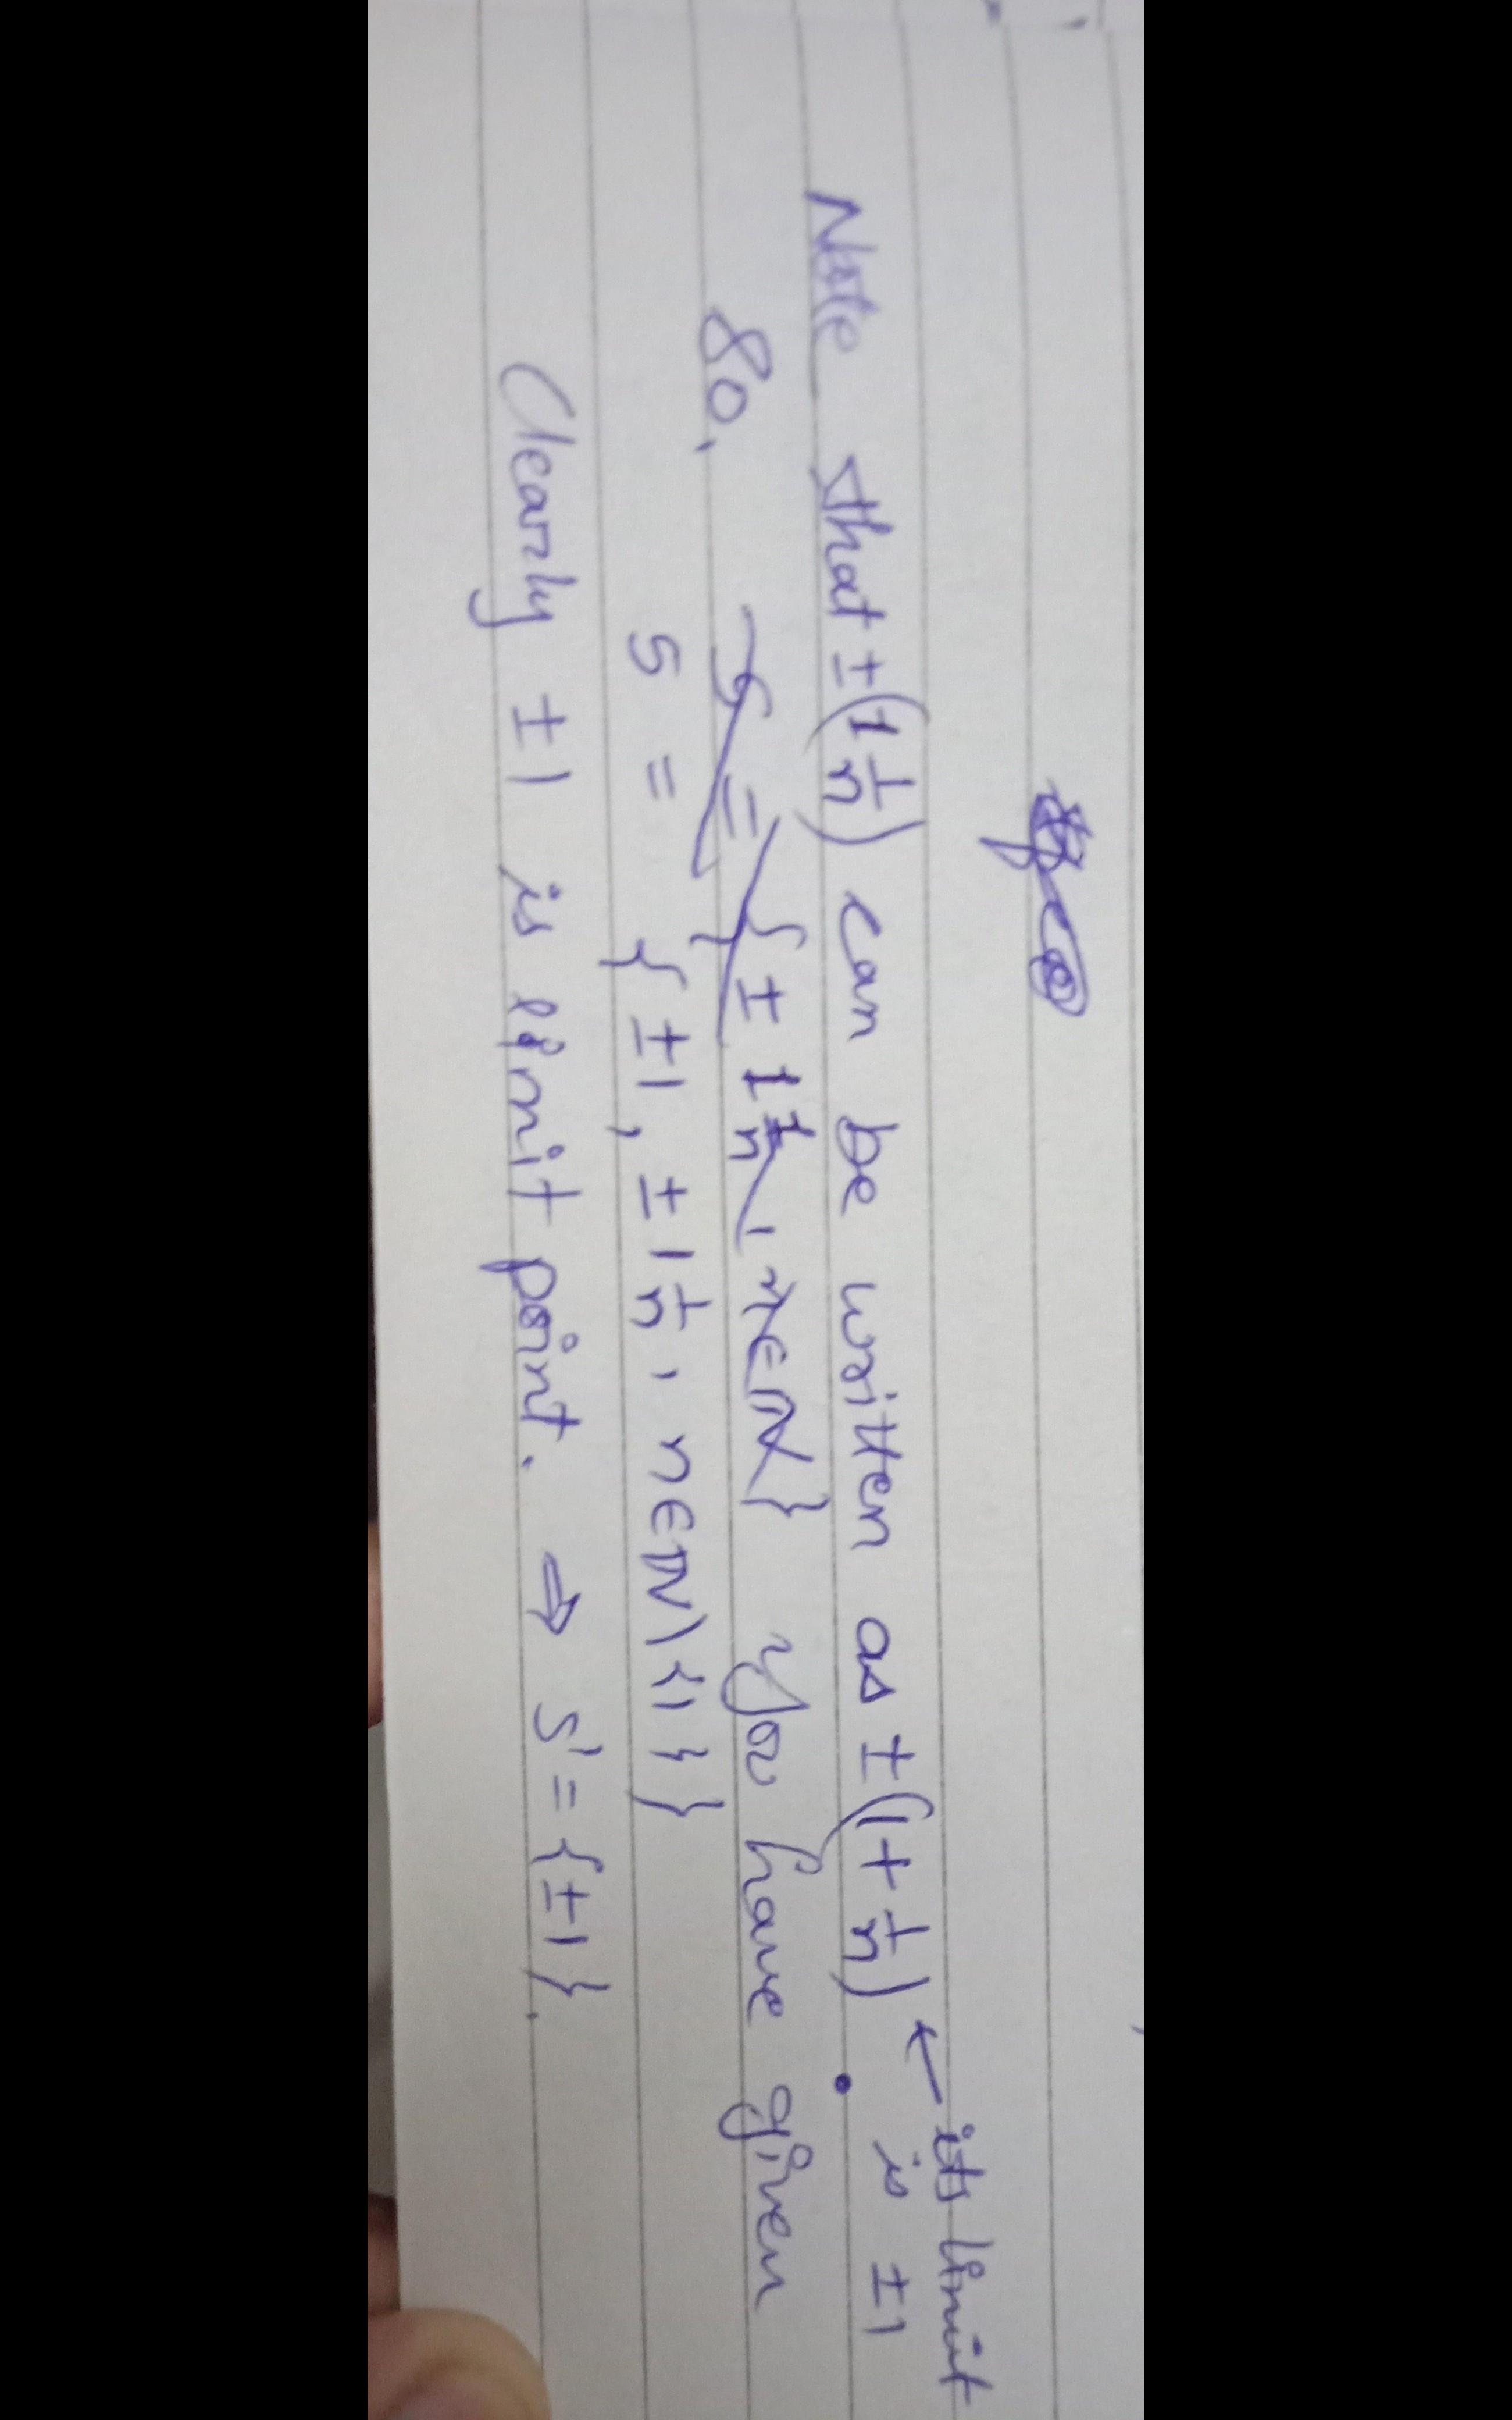 its limit
Note that ±(1 1/n) can be written as ±(1+1/n) ← is ±1
So, S = {± 1 1/n, n∈N} you have given
S = {±1, ±1 1/n, n∈N\{1}}
Clearly ±1 is limit point. ⇒ S' = {±1}.